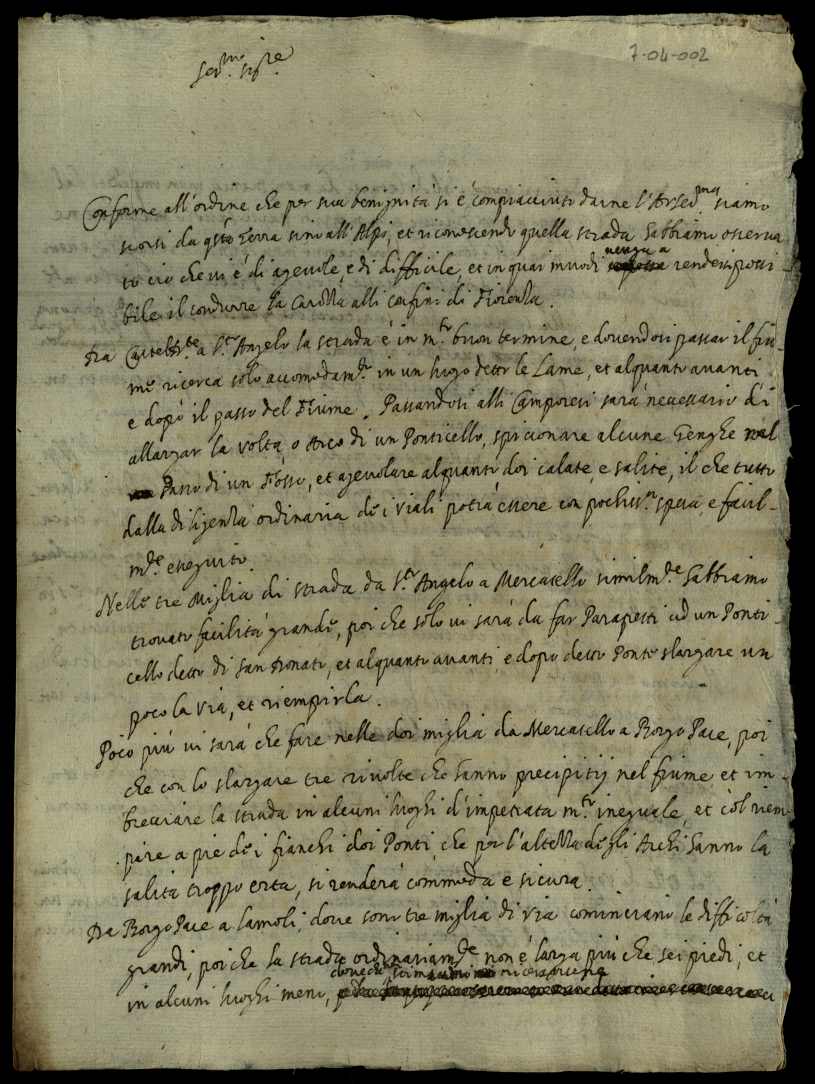 7-04-002
Ser.mo Sig.re
Conforme all'ordine che per sua benignità si è compiacciuto darne l'A.V.Ser.ma siamo
scorsi da q.sta Terra sino all'Alpi, et riconoscendo quella strada habbiamo osserva
to ciò che vi è di agevole, e di difficile, et in quai muodi venga a rendersi possi-
bile il condurre la Carozza alli confini di Fiorenza.
Da Casteld.te a S.to Angelo la strada è in m.to buon termine, e dovendosi passar il fiu-
me ricerca solo accomodam.to in un luogo detto le Lame, et alquanto avanti
e dopò il passo del Fiume. Passandosi alli Camporesi sarà necessario di
allargar la volta, o Arco di un Ponticello, spicionare alcune Genghe nel
Passo di un Fosso, et agevolare alquanto doi calate, e salite, il che tutto
dalla diligenza ordinaria de i viali potrà essere con pochiss.a spesa, e facil-
m.te eseguito.
Nelle tre Miglia di strada da S.to Angelo a Mercatello similm.te habbiamo
trovato facilità grande, poi che solo vi sarà da far Parapetti ad un Ponti-
cello detto di San Donato, et alquanto avanti, e dopo detto Ponte slargare un
poco la via, et riempirla.
Poco più vi sarà che fare nelle doi miglia da Mercatello a Borgo Pace, poi
che con lo slargare tre rivolte che hanno precipitij nel fiume et im-
brecciare la strada in alcuni luoghi d'impetrata m.to ineguale, et col riem
pire a pie de i fianchi doi Ponti, che per l'altezza degli Archi hanno la
salita troppo erta, si renderà commoda e sicura.
Da Borgo Pace a Lamoli, dove sono tre miglia di via cominciano le difficoltà
grandi, poi che la strada ordinariam.te non è larga più che sei piedi, et
in alcuni luoghi meno,